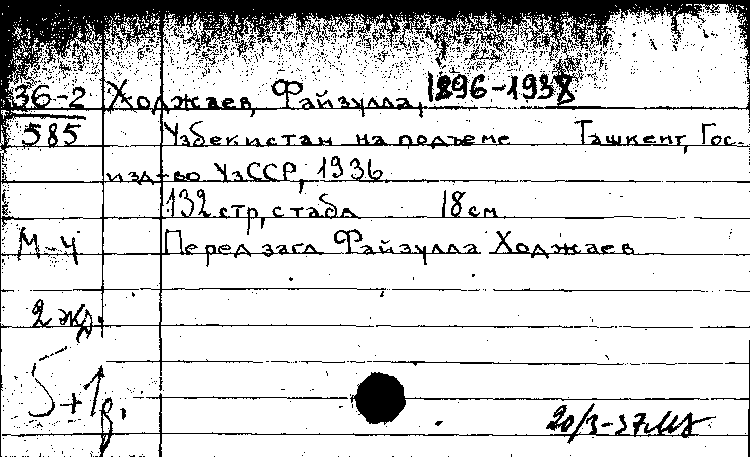 36-2 Ходжаев, Файзулла, 1896-1938
585 Узбекистан на подъеме Ташкент, Гос-
изд-во УзССР, 1936.
132 стр, с табл 18 см
М-4 Перед загл Файзулла Ходжаев
2 жд.
5+1д.
20/3-37